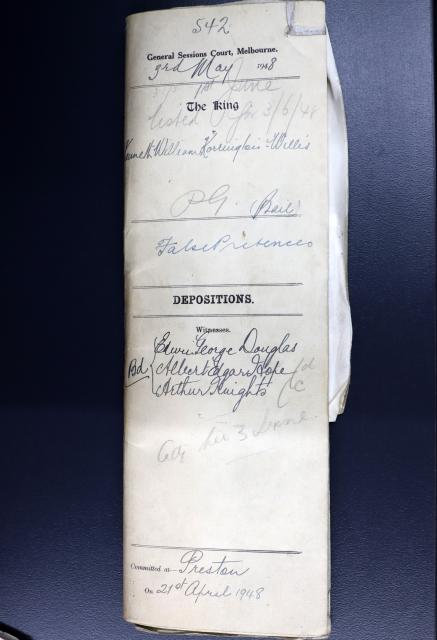 542
General Sessions Court, Melbourne.
3rd May 1948
1st June
The King
listed for 3/6/48
v
Kenneth William Willis
P.G. (Bail)
False Pretences
DEPOSITIONS.
Witnesses.
Edwin George Douglas
Bd { Albert Edgar Hope
Arthur Knights
3 June
Committed at Preston
On 21st April 1948